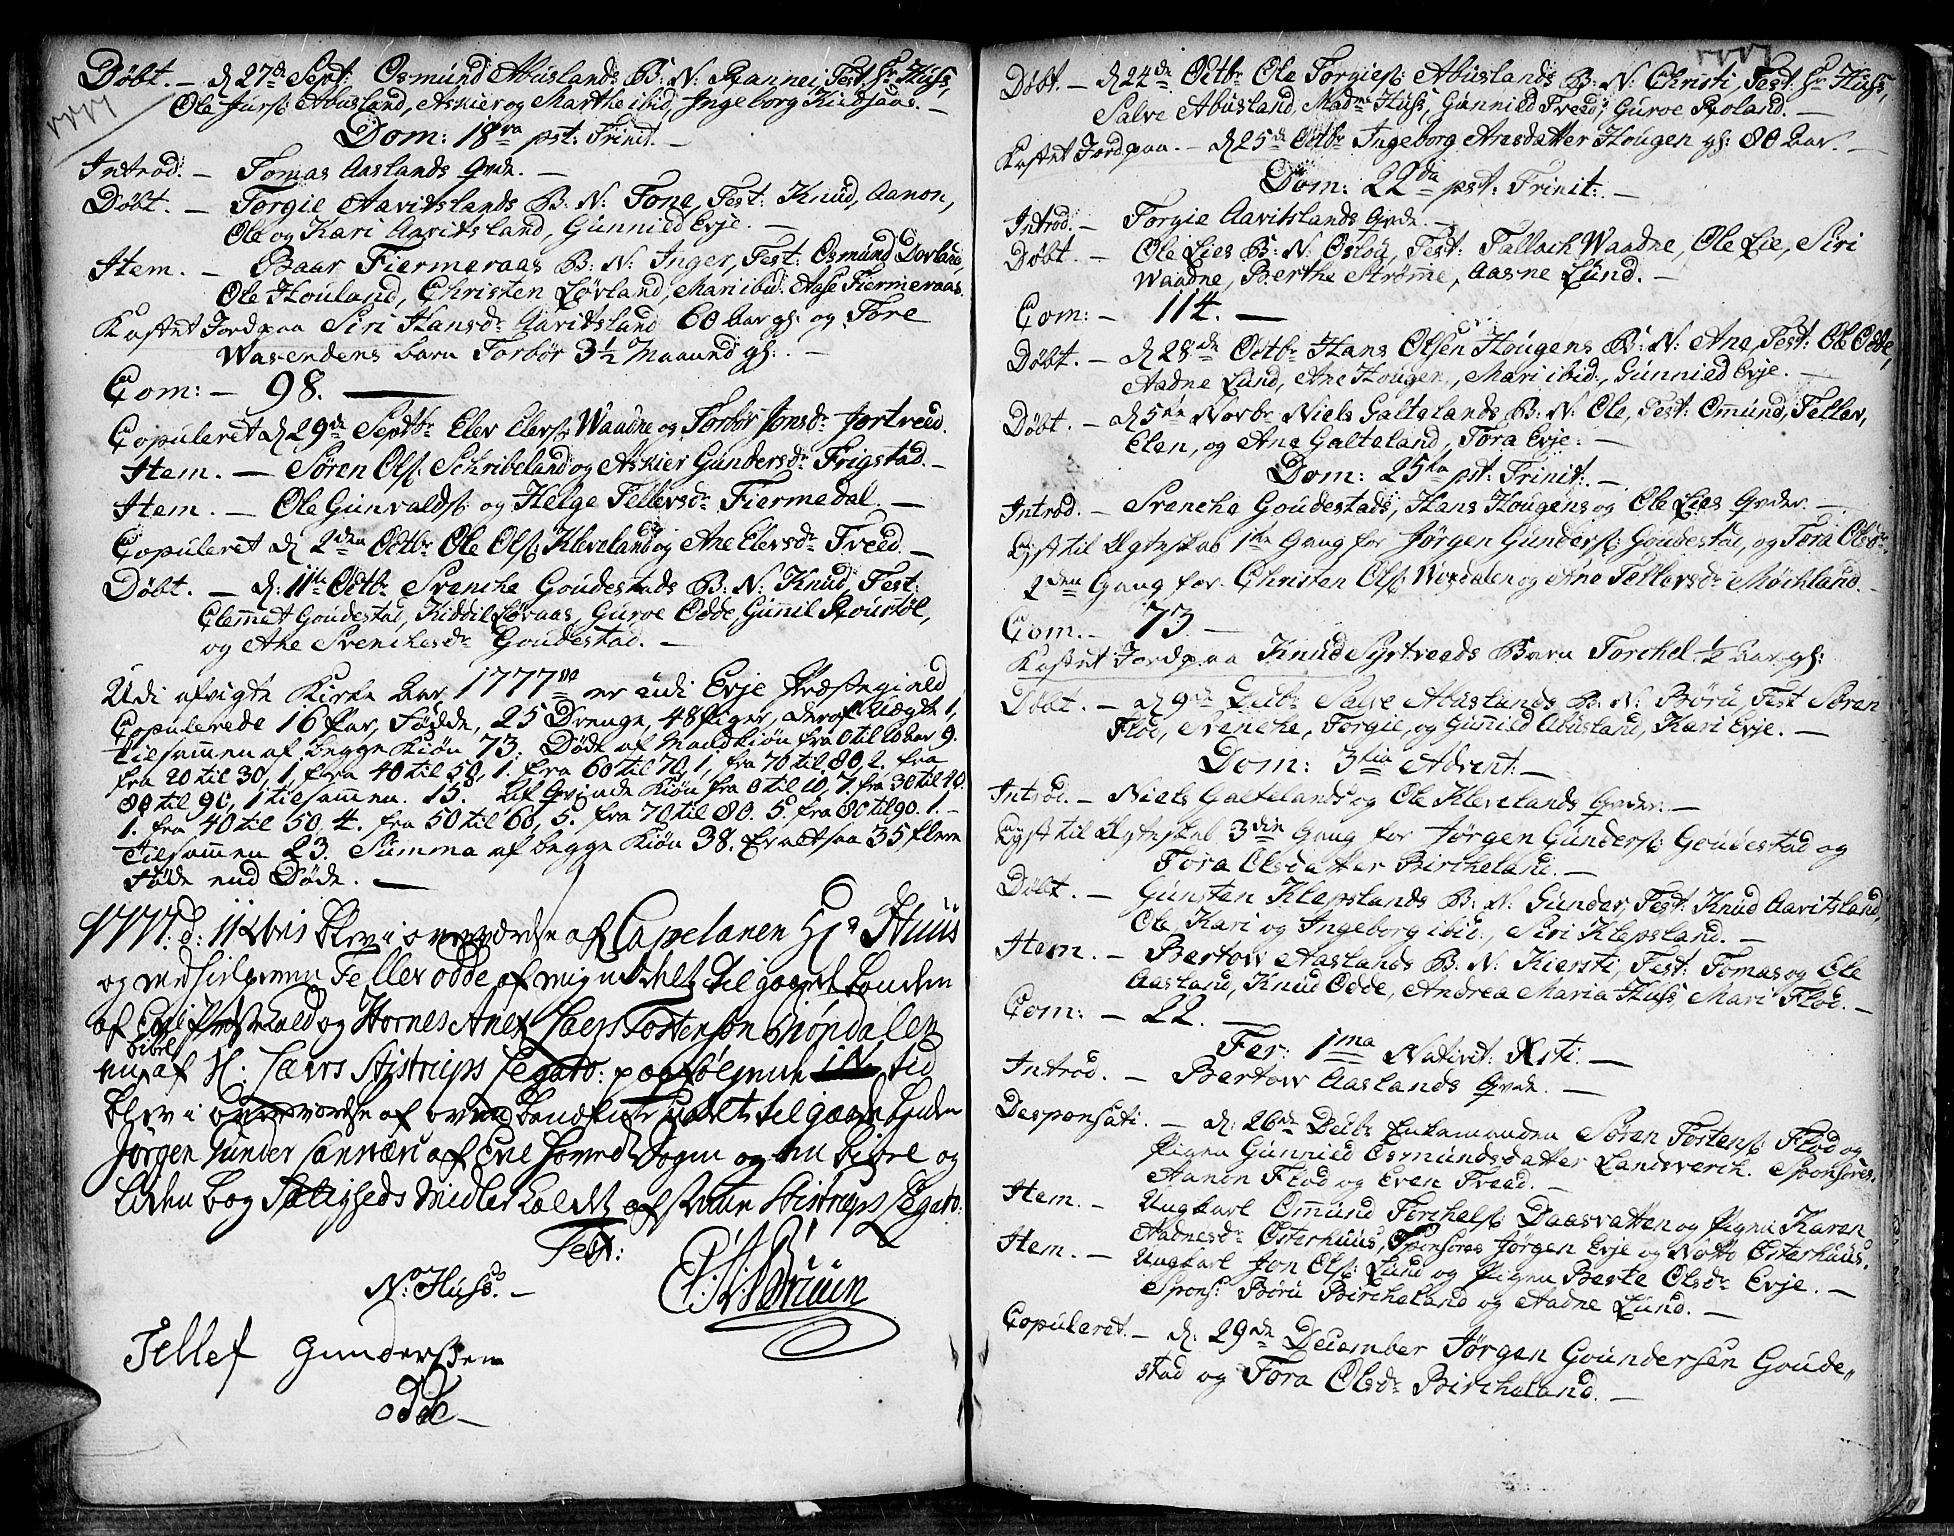 1777
Døbt. – d 27de Sept: Osmund Abuslands B: N: Rannei, Test: Hr Huss,
Ole Jurs: Abusland, Askier og Marthe ibid, Ingeborg Kiibsaas. –
Dom: 18va pst: Trinit. –
Introd. – Tomas Aaslands Qvde. –
Døbt. – Torgie Aavitslands B: N: Tone, Test: Knud, Aanon,
Ole og Kari Aavitsland, Gunnild Evje. –
Item. – Baar Fiermeraas B: N: Inger, Test: Osmund Dovland,
Ole Houland, Christen Løvland, Mari ibid: Aase Fiermeraas.
Kastet Jord paa Siri Hansdr Aavitsland 60 Aar gl: og Tore
Wasendens barn Torbör 3½ Maaned gl: –
Com: – 98. –
Copuleret d 29de Septbr Elev Elevs: Waadne og Torbör Jonsdr Jortveed.
Item. – Søren Ols: Schribeland og Askier Gundersdr Frigstad. –
Item. – Ole Gunvalds: og Helge Tellevsdr Fiermedal. –
Copuleret d 2den Octbr Ole Ols: Kleveland og Ane Elevsdr Treed. –
Døbt. – d: 11te Octbr Svenche Goudestads B: N: Knud, Test:
Clemmet Goudestad, Kiddil Løvaas, Guroe Odde, Gunnil Roustøl,
og Ane Svenchesdr Goudestad. –
Udi afvigte Kirke Aar 1777de er udi Evje Præstegield
Copulerede 16 Par, Fødde, 25 Drenge, 48 Piger, deraf Uægte 1,
tilsammen af begge Kiøn 73. Døde af Mandkiøn fra 0 til 10 aar 9.
fra 20 til 30, 1, fra 40 til 50, 1. fra 60 til 70, 1, fra 70 til 80, 2. fra
80 til 90, 1 tilsammen. 15. Af Qvinde Kiøn fra 0 til 10, 7. fra 30 til 40
1. fra 40 til 50. 4. fra 50 til 60, 5. fra 70 til 80. 5. fra 80 til 90. 1. –
Tilsammen 23. Summa af begge Kiøn 38. Er altsaa 35 flere
Føde end Døde. –
1777. d: 11 Xbris blev i overværelse af Capelanen Hr Huus
og Tellev odde af mig til
af og Hornes Anex Torstensøn
bibel
af H. Stistrups Legato:
blev i overværelse af
Jørgen Gunder af og en bibel og
bog Saligheds Midler af Stistrups Legato.
Test:
N: Huss. –
Tellef Gundersen
odde –
1777
Døbt. – d 24de Octbr Ole Torgies: Abuslands B: N: Christi, Test: Hr Huss,
Salve Abusland, Madme Huss, Gunnild Treed, Guroe Roland. –
Kastet Jord paa. – d 25de Octbr Ingeborg Aresdatter Hougen gl: 80 Aar. –
Dom: 22da pst: Trinit: –
Introd. – Torgie Aavitslands Qvde. –
Døbt. – Ole Lies B: N: Oslou, Test: Tallach Waadne, Ole Lie, Siri
Waadne, Berthe Strømme, Aasne Lund. –
Com: – 114. –
Døbt. – d 28de Octbr Hans Olsen Hougens B: N: Ane, Test: Ole Odde,
Aadne Lund, Ane Hougen, Mari ibid:, Gunnild Evje. –
Døbt. – d 5te Novbr Niels Galtelands B: N: Ole, Test: Ommund, Tellev,
Elen, og Ane Galteland, Tora Evje. –
Dom: 25ta pst: Trinit. –
Introd. – Svenche Goudestads, Hans Hougens og Ole Lies Qvder. –
Lyst til Ægteskab 1te Gang for Jørgen Gunders: Goudestad, og Tora Olsdr,
2den Gang for Christen Ols: Wordalen og Ane Tellevsdr Møchland. –
Com. – 73. –
Kastet Jord paa Knud Syrtveeds Barn Torchel ½ Aar gl:
Døbt. – d 9de Decbr Salve Abuslands B: N: Børu, Test Søren
Flod, Svenche, Torgie, og Gunnild Abusland, Kari Evje. –
Dom: 3tia Advent. –
Introd. – Niels Galtelands og Ole Klevelands Qvder. –
Lyst til Ægteskab 3die Gang for Jørgen Gunders: Goudestad og
Tora Olsdatter Bircheland. –
Døbt. – Gunsten Klepslands B: N: Gunder, Test: Knud Aavitsland,
Ole, Kari og Ingeborg ibid:, Siri Klepsland. –
Item. – Bertow Aaslands B: N: Kiersti, Test: Tomas og Ole
Aasland, Knud Odde, Andrea Maria Huss, Mari Flod. –
Com: – 22. –
Fer: 1ma Nativit: Xsti. –
Introd. – Bertow Aaslands Qvde. –
Desponsati. – d: 26de Decbr Enkemanden Søren Tostens: Flod og
Pigen Gunnild Osmundsdatter Landsverch. Sponsores
Aanon Flod og Even Treed. –
Item. – Ungkarl Ommund Torchels: Daasvatten og Pigen Karen
Aadnesdr Østerhuus, Sponsores Jørgen Evje og Notto Østerhuus.
Item. – Ungkarl Jon Ols: Lund og Pigen Berte Olsdr Evje. –
Spons: Børu Bircheland og Aadne Lund. –
Copuleret. – d: 29de December Jørgen Goundersen Goude„
stad og Tora Olsdr Bircheland. –